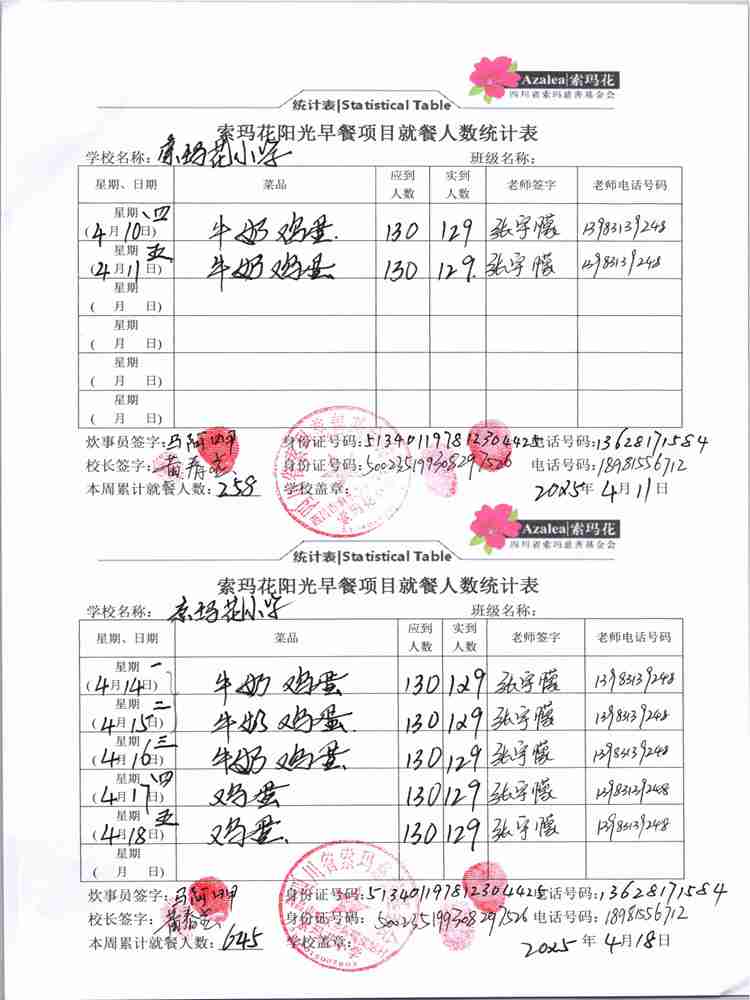 Azalea|索玛花
四川省索玛慈善基金会
统计表|Statistical Table
索玛花阳光早餐项目就餐人数统计表
学校名称：索玛花小学 班级名称：
星期、日期 菜品 应到人数 实到人数 老师签字 老师电话号码
星期四 (4月10日) 牛奶 鸡蛋. 130 129 张宇朦 13983139248
星期五 (4月11日) 牛奶 鸡蛋. 130 129. 张宇朦 13983139248
星期 ( 月 日)
星期 ( 月 日)
星期 ( 月 日)
星期 ( 月 日)
炊事员签字: 马阿 身份证号码:513401197812304425 电话号码:13628171584
校长签字: 黄春 身份证号码:500235199308297526 电话号码:18981556712
本周累计就餐人数:258 学校盖章: 2025年4月11日
Azalea|索玛花
四川省索玛慈善基金会
统计表|Statistical Table
索玛花阳光早餐项目就餐人数统计表
学校名称：索玛花小学 班级名称：
星期、日期 菜品 应到人数 实到人数 老师签字 老师电话号码
星期一 (4月14日) 牛奶 鸡蛋 130 129 张宇朦 13983139248
星期二 (4月15日) 牛奶 鸡蛋. 130 129 张宇朦 13983139248
星期三 (4月16日) 牛奶 鸡蛋. 130 129 张宇朦 13983139248
星期四 (4月17日) 鸡蛋 130 129 张宇朦 13983139248
星期五 (4月18日) 鸡蛋. 130 129 张宇朦 13983139248
星期 ( 月 日)
炊事员签字: 马阿 身份证号码:513401197812304425 电话号码:13628171584
校长签字: 黄春 身份证号码: 500235199308297526 电话号码:18981556712
本周累计就餐人数:645 学校盖章: 2025年4月18日